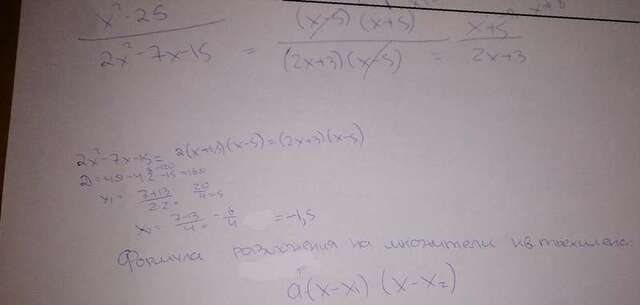 x² - 25 / 2x² - 7x - 15 = (x-5)(x+5) / (2x+3)(x-5) = x+5 / 2x+3
2x² - 7x - 15 = 2(x+1,5)(x-5) = (2x+3)(x-5)
x₁ = 7+13 / 2·2 = 20 / 4 = 5
x₂ = 7-13 / 4 = -6 / 4 = -1,5
Формула разложения на множители кв. трехчлена.
a(x-x₁)(x-x₂)